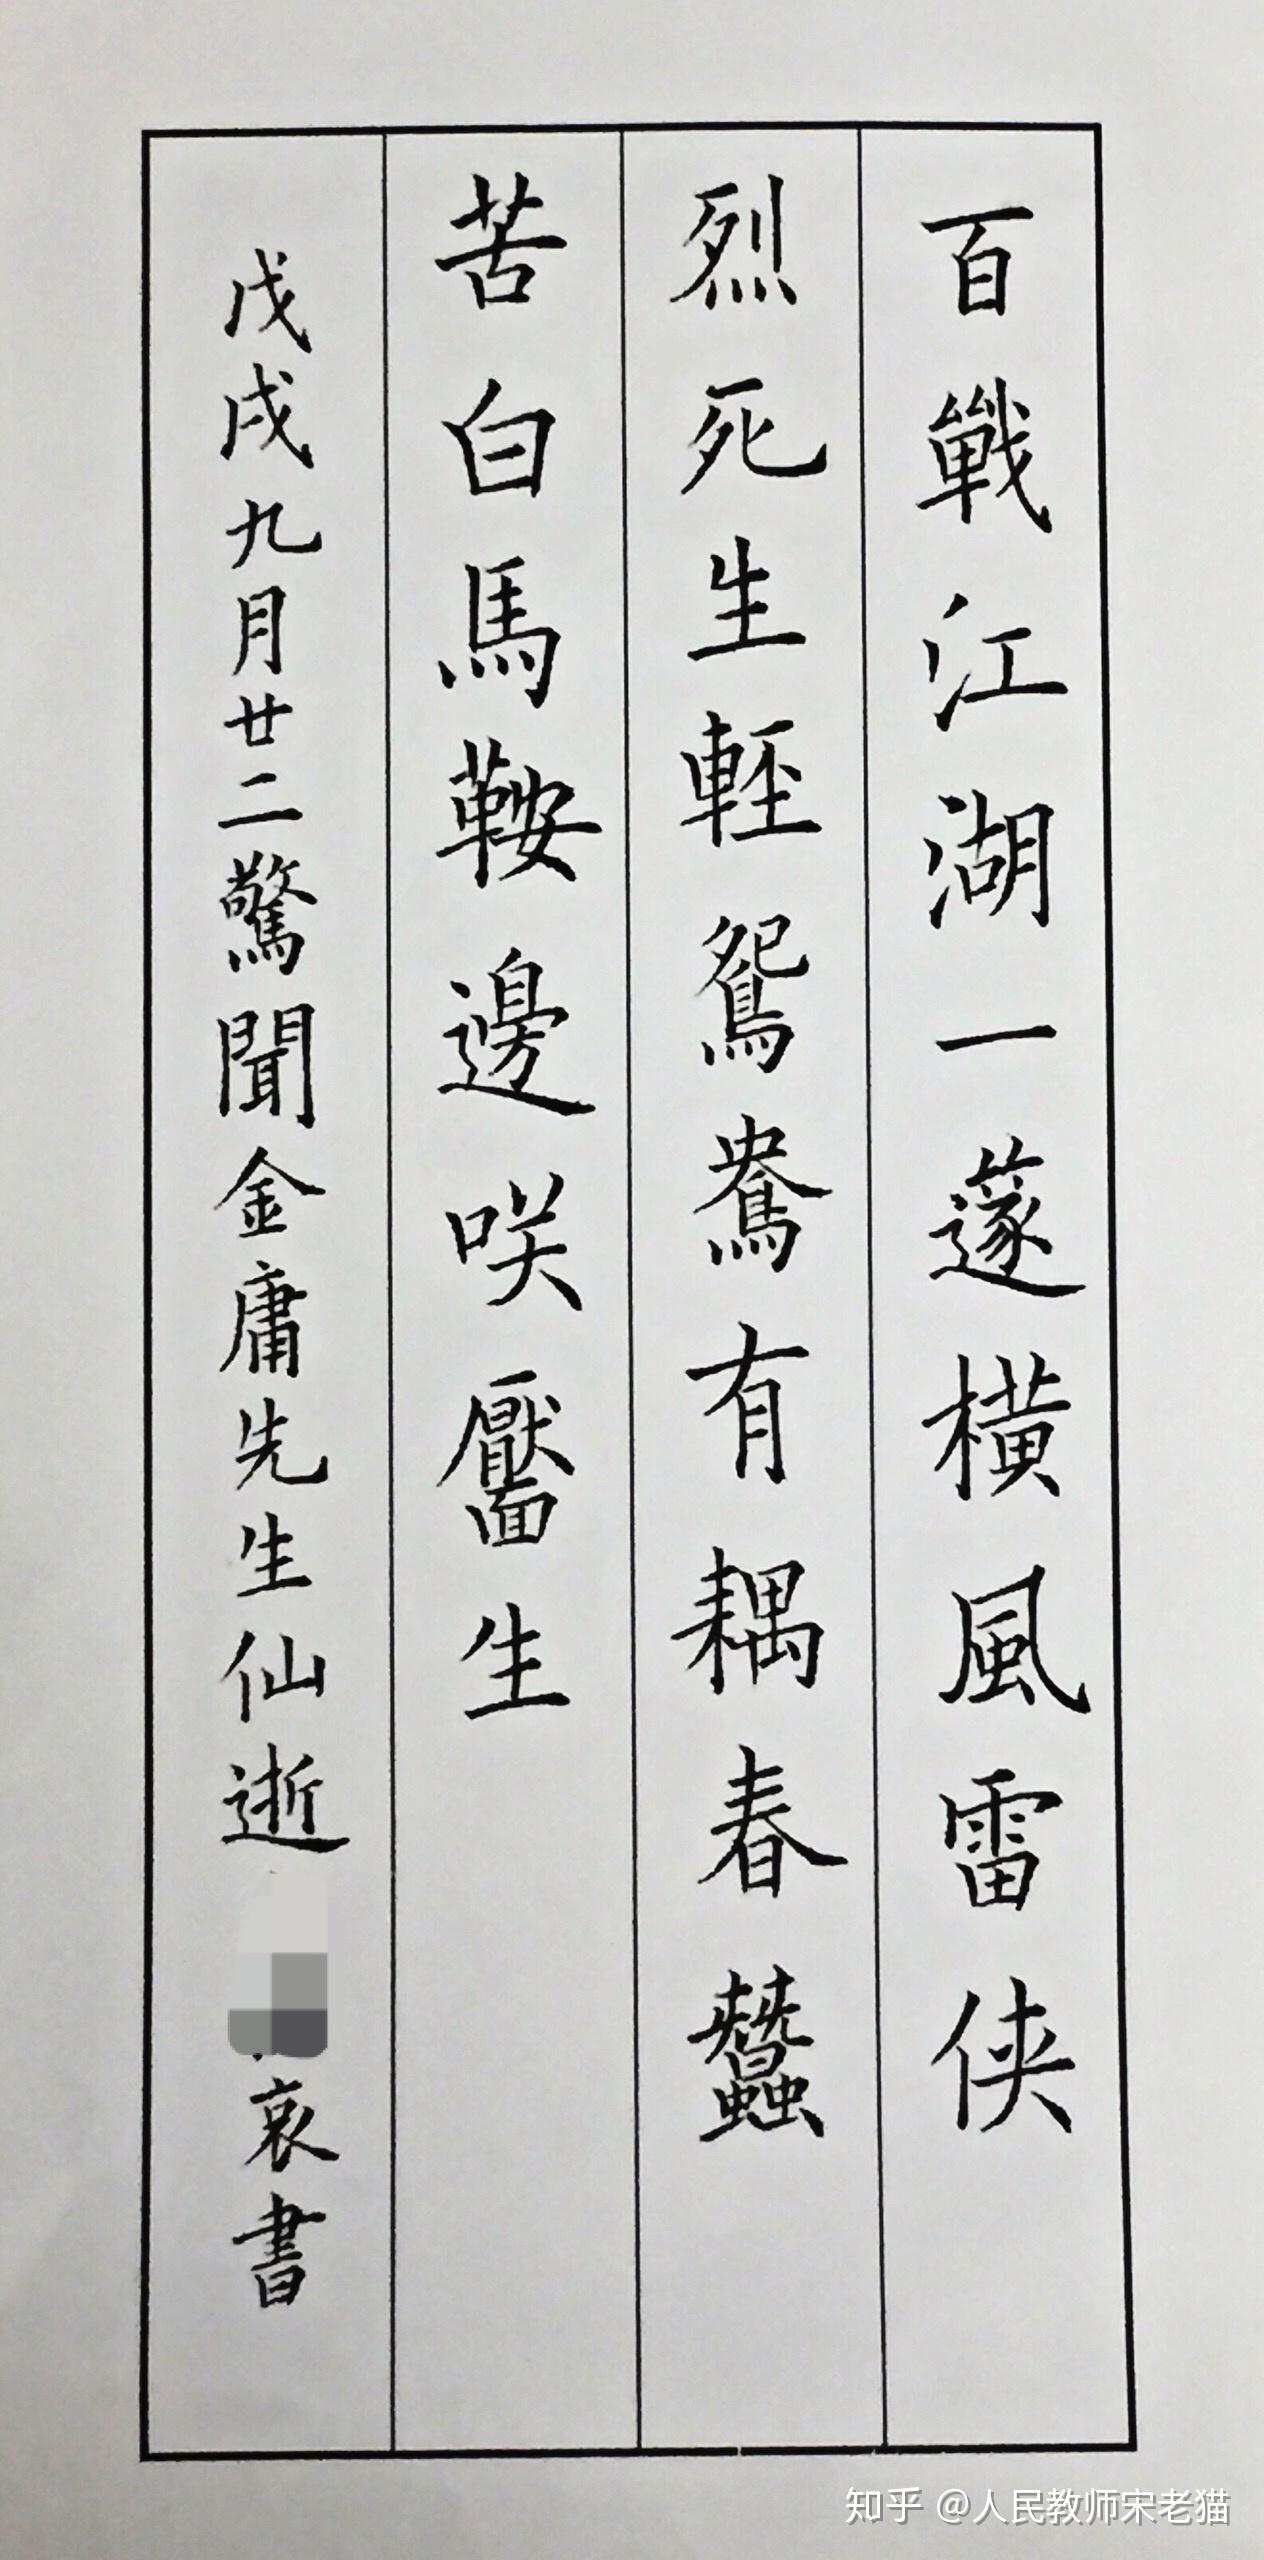 百戰江湖一篴横風雷侠
烈死生輕鴛鴦有耦春蠶
苦白馬鞍邊咲靨生
戊戌九月廿二驚聞金庸先生仙逝哀書
知乎 @人民教师宋老猫